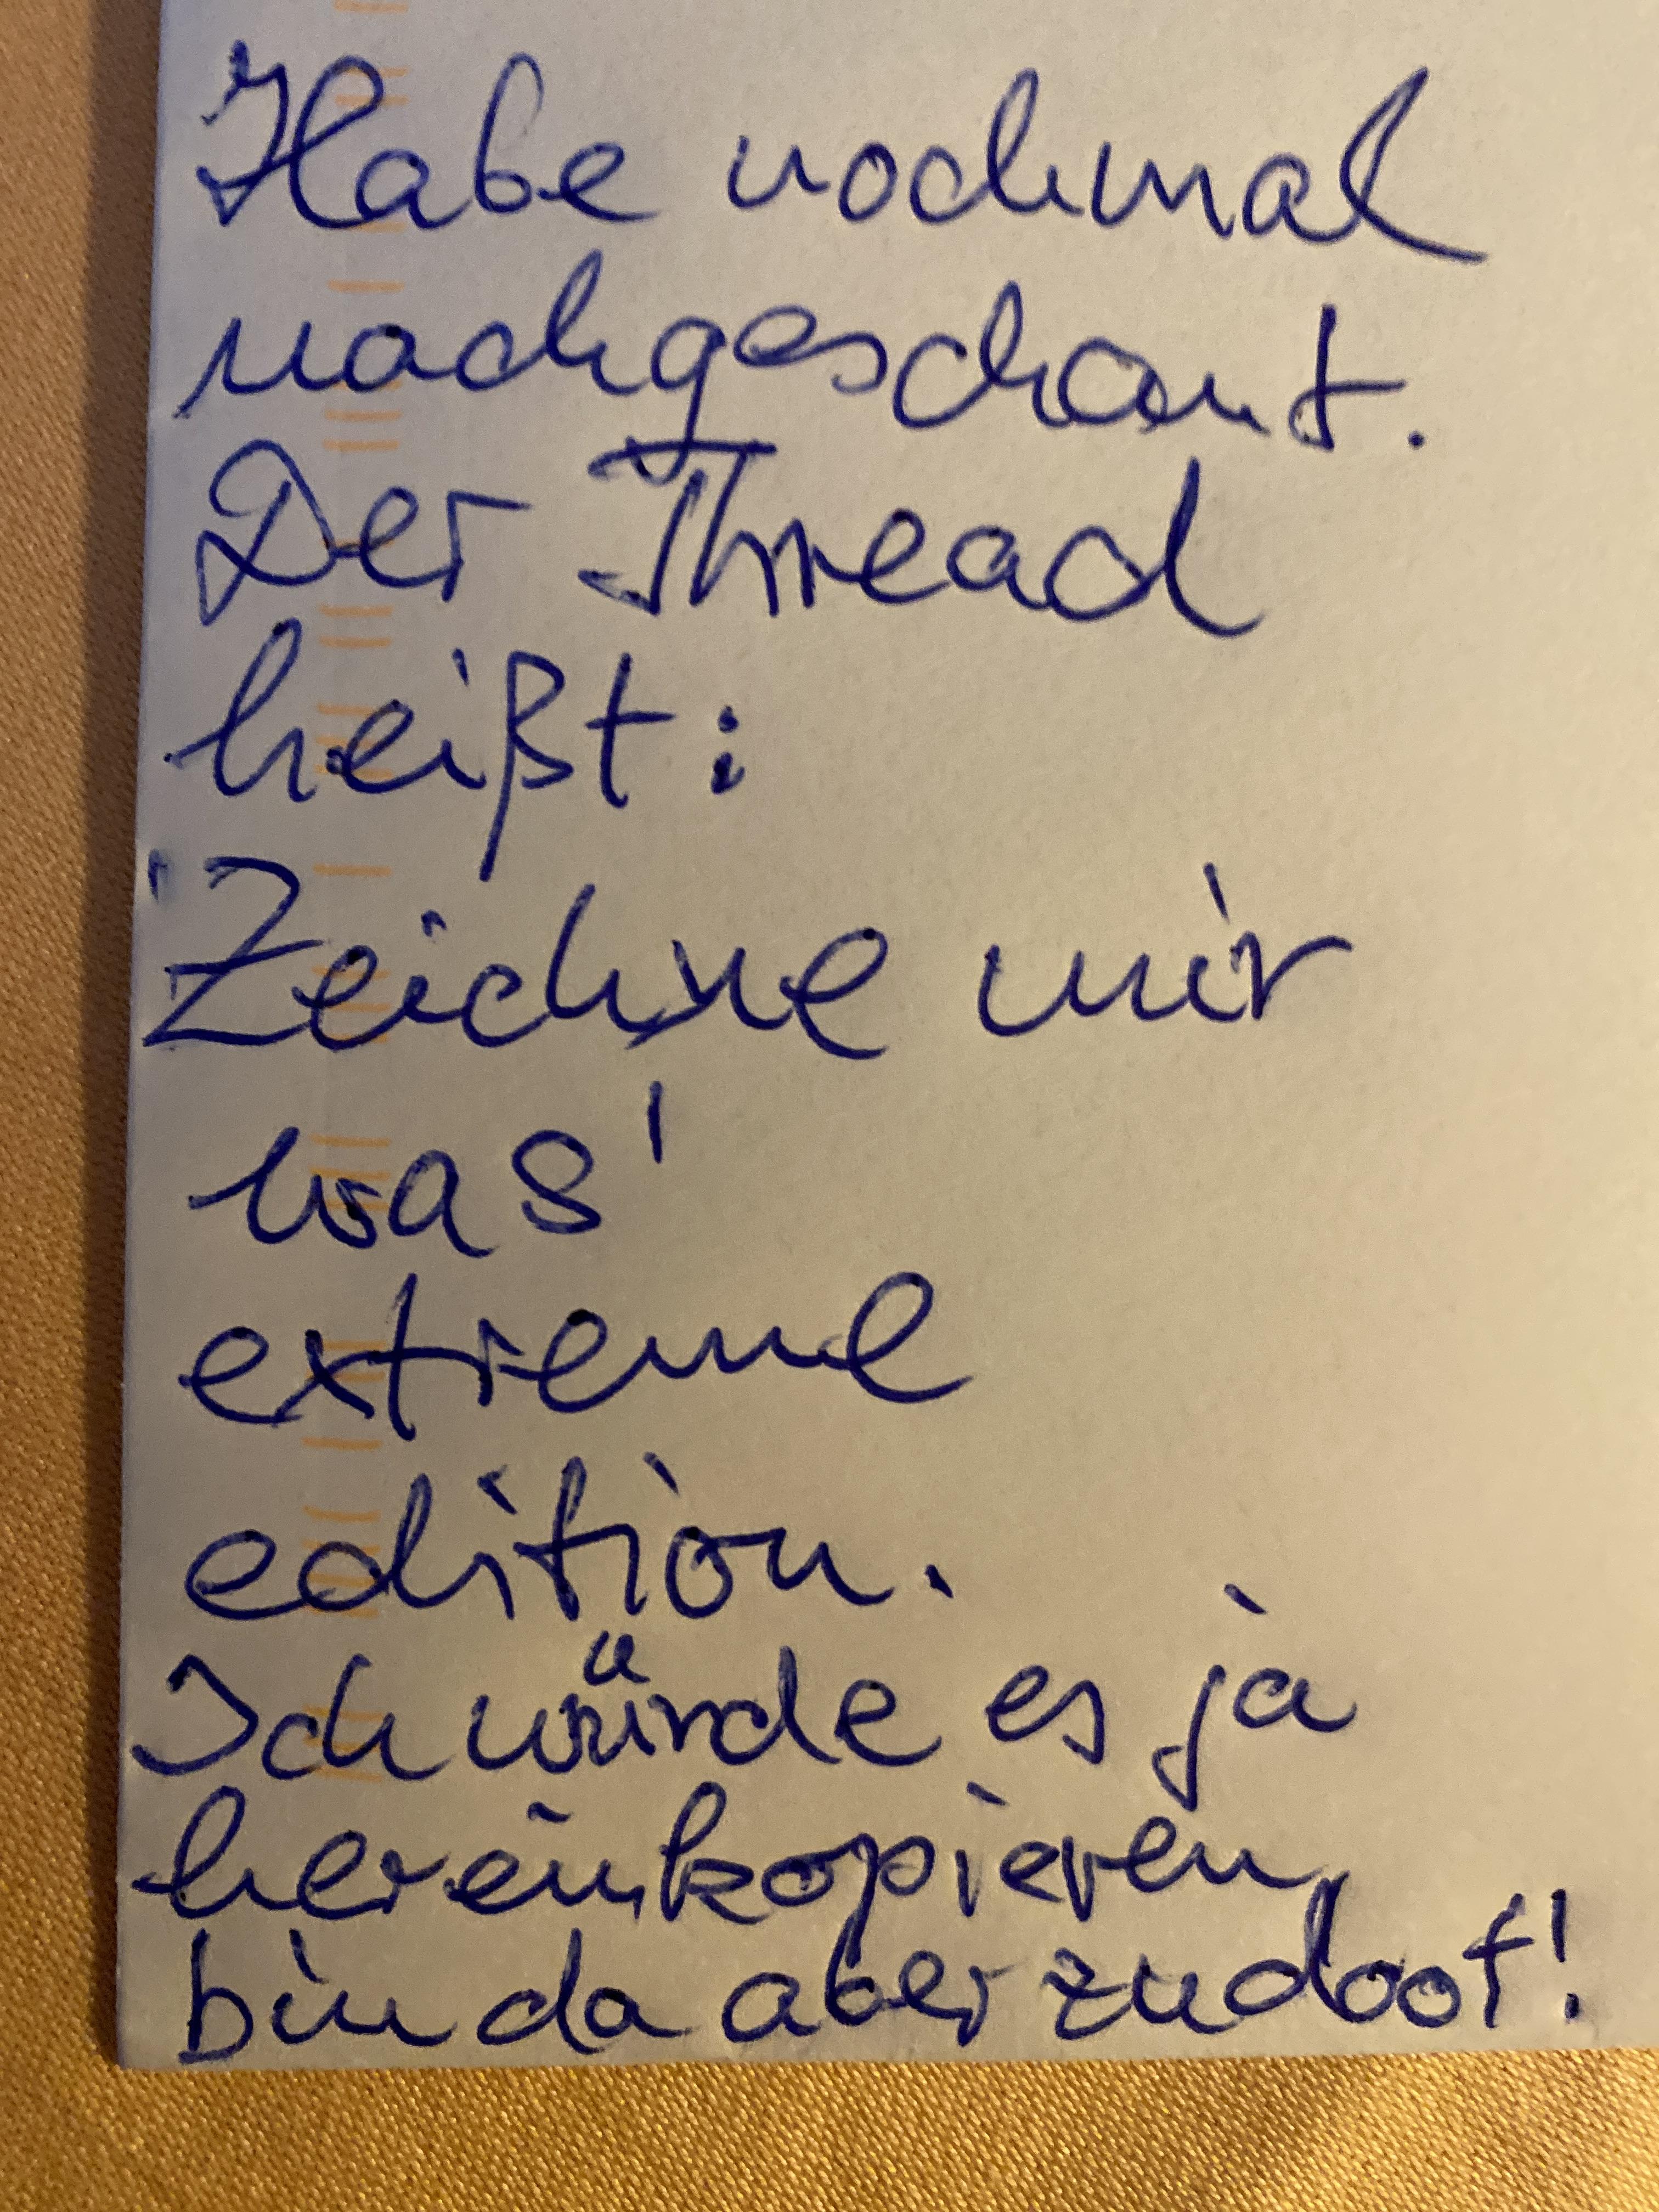 Habe nochmal
nachgeschaut.
Der Thread
heißt:
'Zeichne mir
was'
extreme
edition.
Ich würde es ja
hereinkopieren,
bin da aber zu doof!